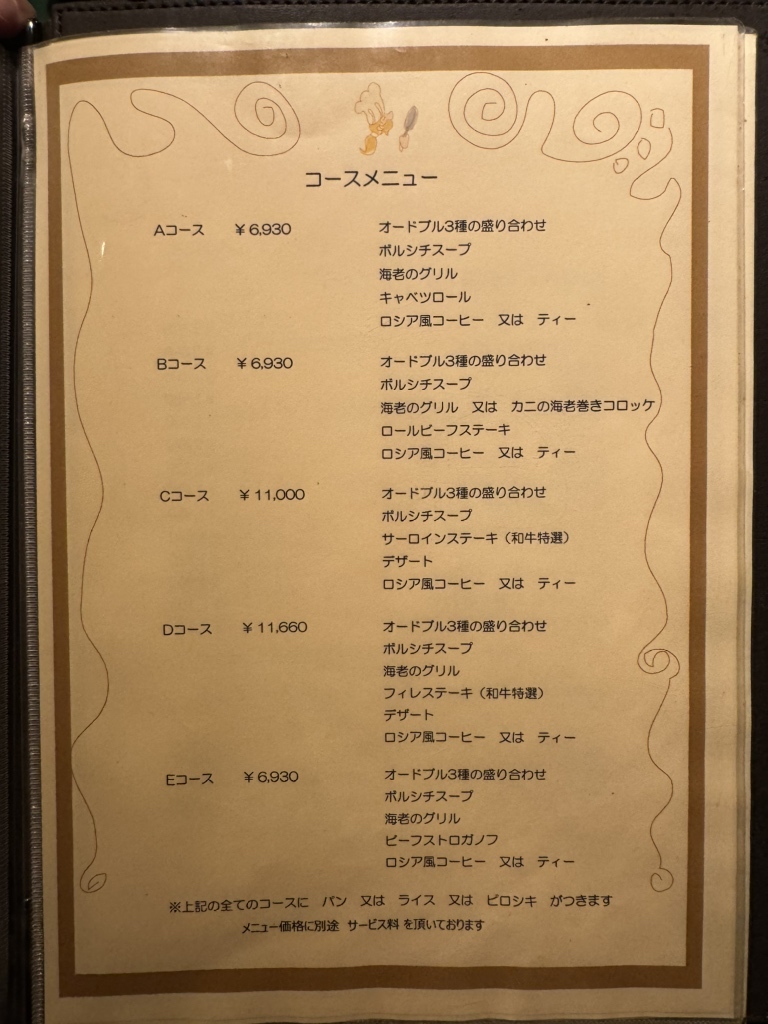 コースメニュー
Aコース ¥6,930 オードブル3種の盛り合わせ
ボルシチスープ
海老のグリル
キャベツロール
ロシア風コーヒー 又は ティー
Bコース ¥6,930 オードブル3種の盛り合わせ
ボルシチスープ
海老のグリル 又は カニの海老巻きコロッケ
ロールビーフステーキ
ロシア風コーヒー 又は ティー
Cコース ¥11,000 オードブル3種の盛り合わせ
ボルシチスープ
サーロインステーキ（和牛特選）
デザート
ロシア風コーヒー 又は ティー
Dコース ¥11,660 オードブル3種の盛り合わせ
ボルシチスープ
海老のグリル
フィレステーキ（和牛特選）
デザート
ロシア風コーヒー 又は ティー
Eコース ¥6,930 オードブル3種の盛り合わせ
ボルシチスープ
海老のグリル
ビーフストロガノフ
ロシア風コーヒー 又は ティー
※上記の全てのコースに パン 又は ライス 又は ピロシキ がつきます
メニュー価格に別途 サービス料 を頂いております